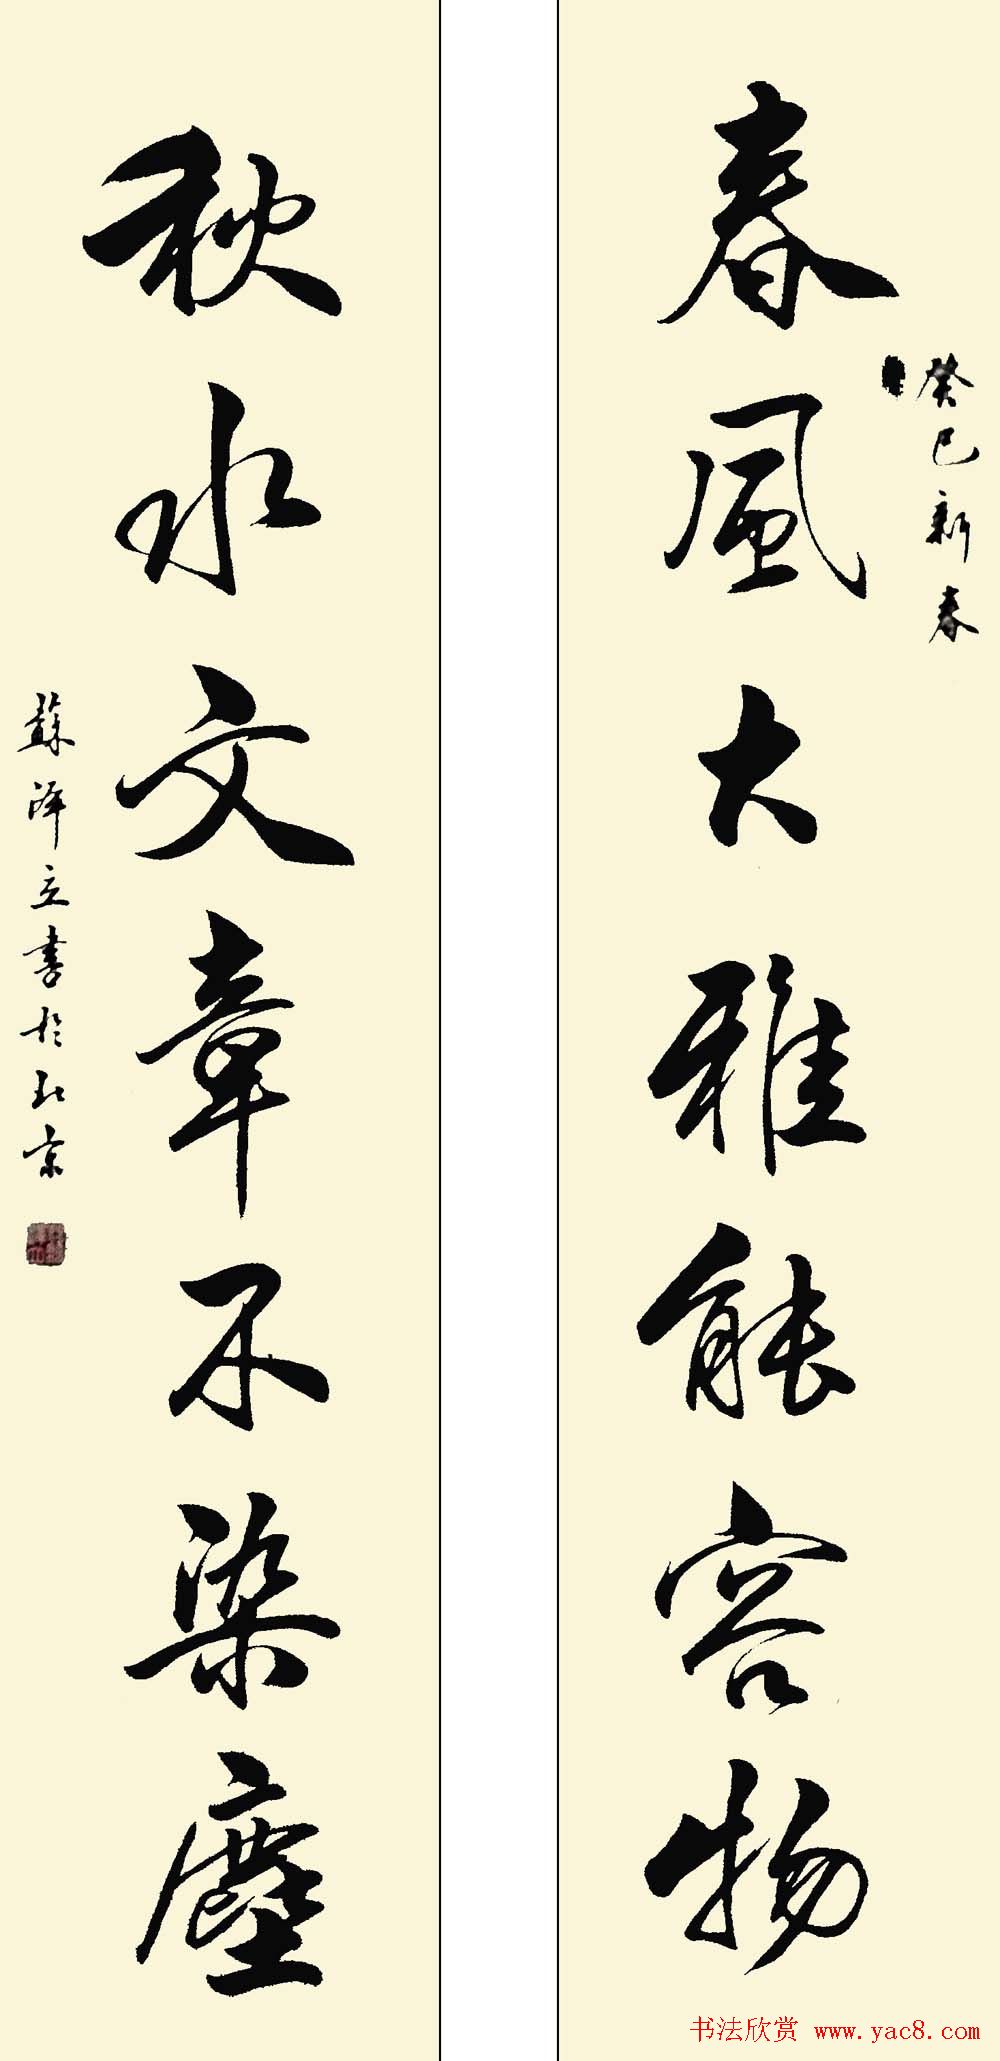 癸巳新春
春風大雅能容物
秋水文章不染塵
蘇澤立書於北京
书法欣赏 www.yac8.com